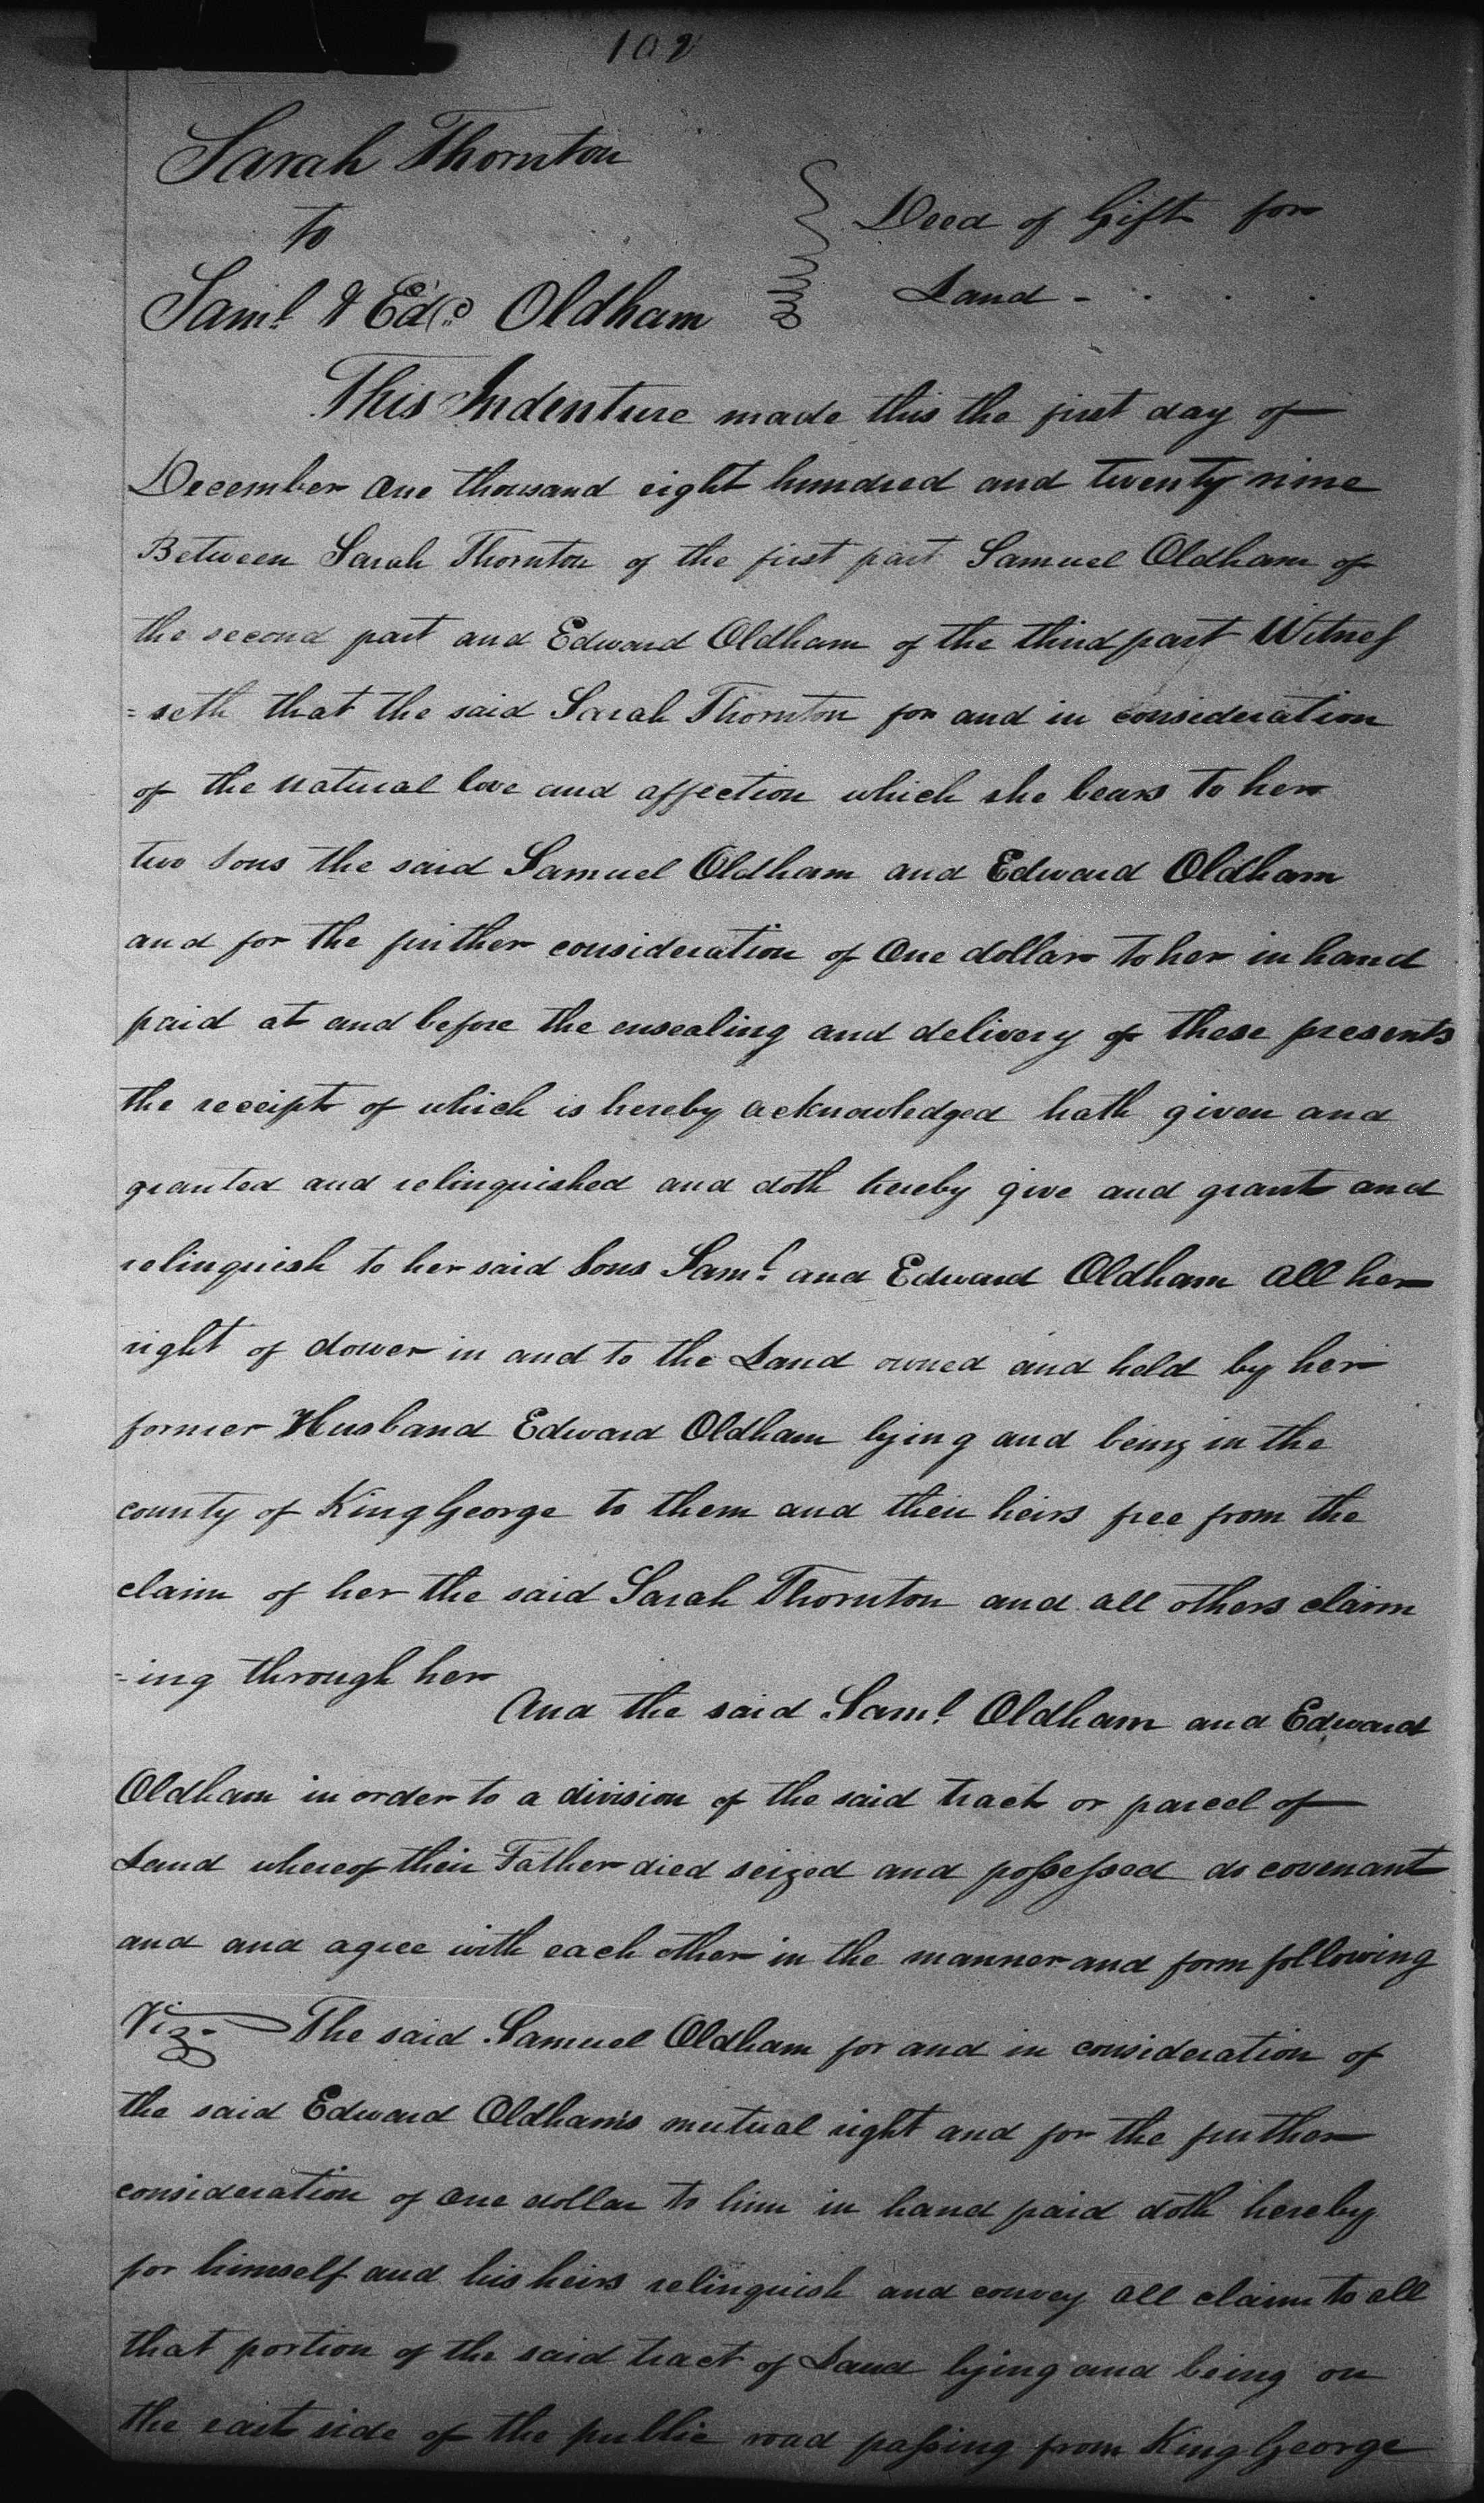 102
Sarah Thornton
to
Saml. & Edd. Oldham
Deed of Gift for
Land - . . .
This Indenture made this the first day of
December One thousand eight hundred and twenty nine
Between Sarah Thornton of the first part Samuel Oldham of
the second part and Edward Oldham of the third part Witneſ
= seth that the said Sarah Thornton for and in consideration
of the natural love and affection which she bears to her
two Sons the said Samuel Oldham and Edward Oldham
and for the further consideration of One dollar to her in hand
paid at and before the ensealing and delivery of these presents
the receipt of which is hereby acknowledged hath given and
granted and relinquished and doth hereby give and grant and
relinquish to her said Sons Saml. and Edward Oldham all her
right of dower in and to the Land owned and held by her
former Husband Edward Oldham lying and being in the
county of King George to them and their heirs free from the
claim of her the said Sarah Thornton and all others claim
=ing through her
And the said Saml. Oldham and Edward
Oldham in order to a division of the said tract or parcel of
Land whereof their Father died seized and poſseſsed do covenant
and and agree with each other in the manner and form following
Viz. The said Samuel Oldham for and in consideration of
the said Edward Oldham's mutual right and for the further
consideration of One dollar to him in hand paid doth hereby
for himself and his heirs relinquish and convey all claim to all
that portion of the said tract of Land lying and being on
the east side of the public road paſsing from King George